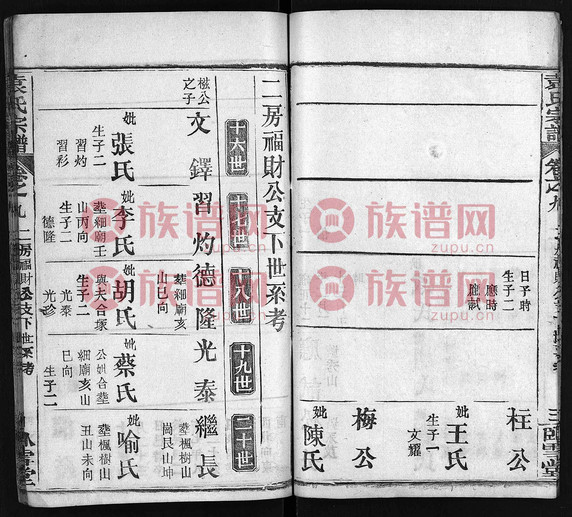 袁氏宗譜
卷之九
日子時
生子二
應時
應試
枉公
妣王氏
生子一
文耀
梅公
妣陳氏
二房福財公支下世系考
十六世
十七世
十八世
十九世
二十世
文鐸
妣張氏
生子二
習灼
習彩
習灼
妣李氏
塟細廟王
山丙向
生子二
德隆
德隆
塟細廟亥
山巳向
妣胡氏
與夫合塚
生子二
光泰
光珍
光泰
妣蔡氏
公妣合塟
細廟亥山
巳向
生子二
繼長
塟楓樹山
崗艮山坤
妣喻氏
塟楓樹山
丑山未向
袁氏宗譜
卷之九
二房福財公支下世系考
族谱网
族谱网